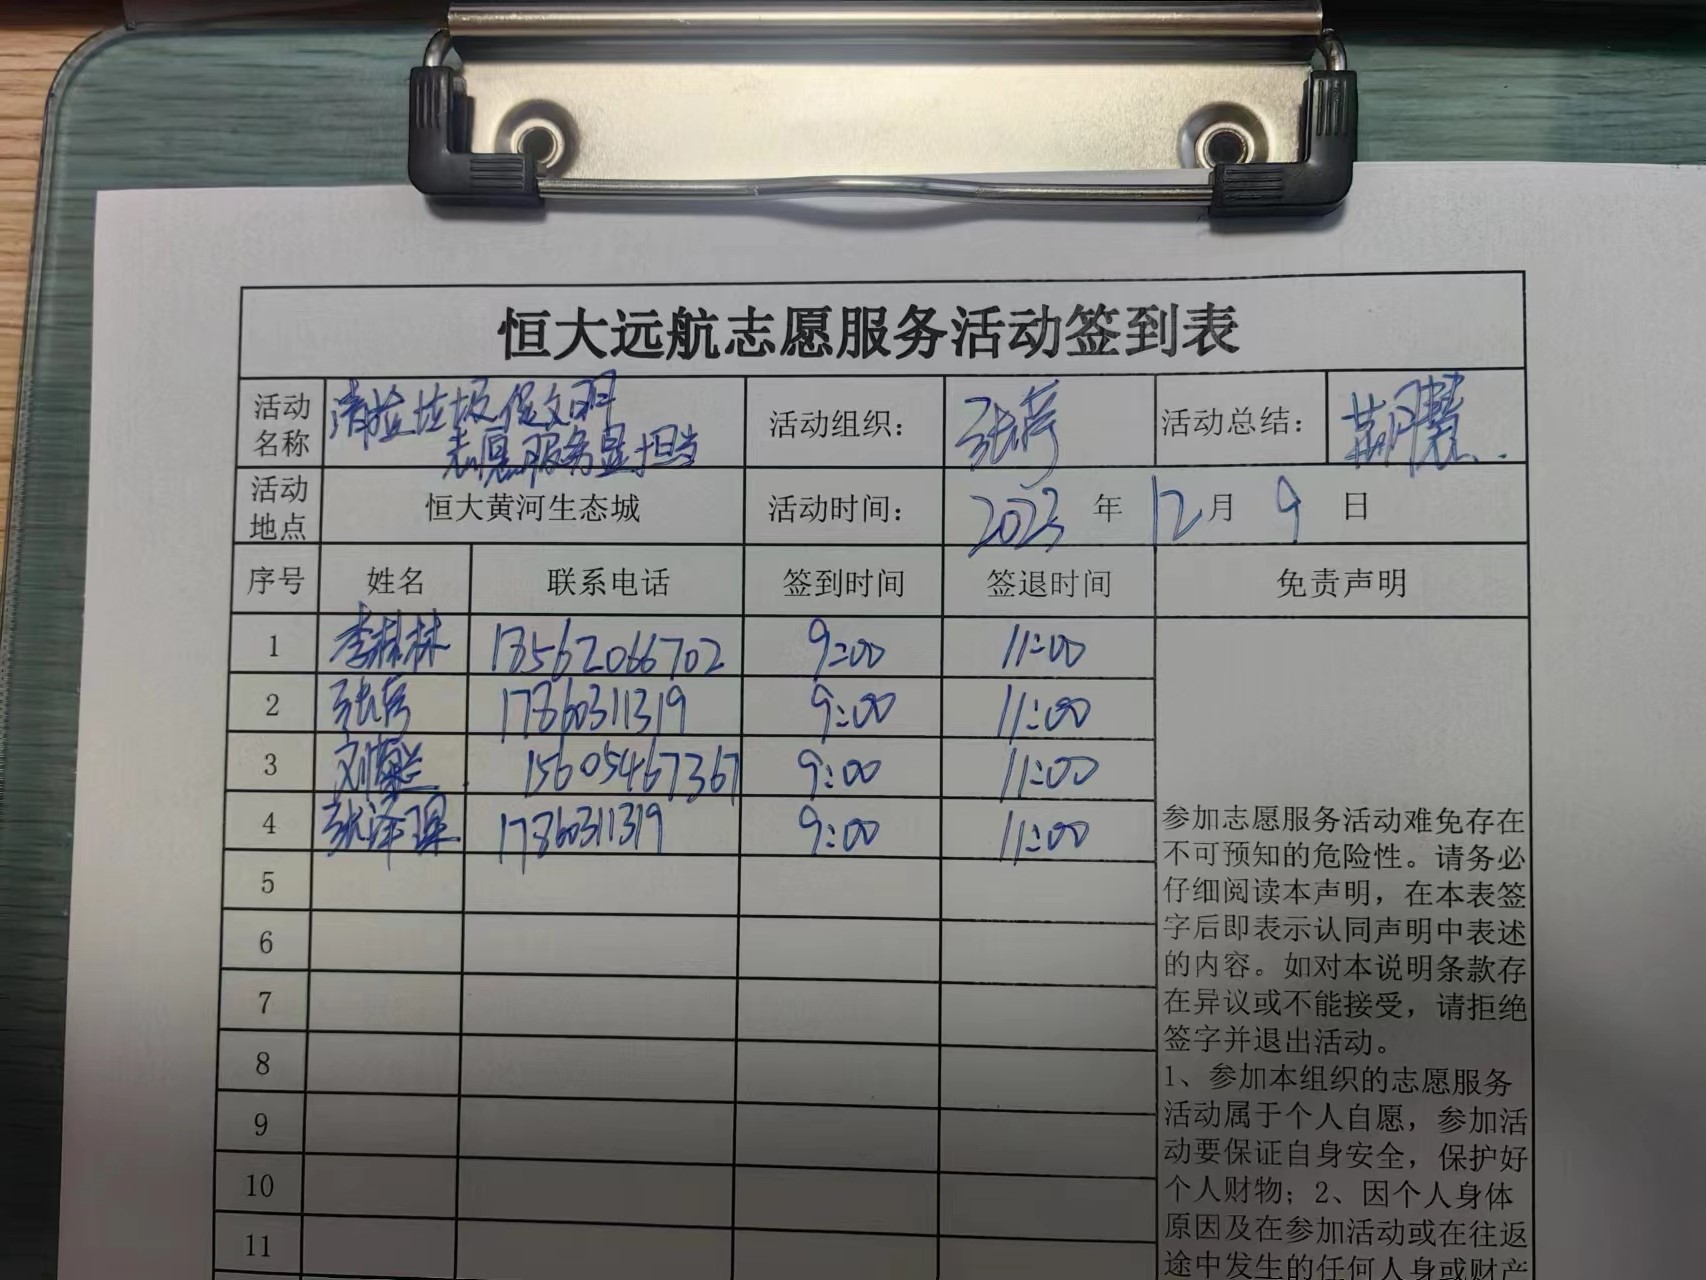 恒大远航志愿服务活动签到表
活动名称 清捡垃圾促文明 志愿服务显担当 活动组织： 张 活动总结： 胡慧
活动地点 恒大黄河生态城 活动时间： 2023 年 12 月 9 日
序号 姓名 联系电话 签到时间 签退时间 免责声明
1 李林林 13562066702 9:00 11:00
2 张 17860311319 9:00 11:00
3 刘 15605467367 9:00 11:00
4 张泽琪 17860311319 9:00 11:00
5
6
7
8
9
10
11
参加志愿服务活动难免存在
不可预知的危险性。请务必
仔细阅读本声明，在本表签
字后即表示认同声明中表述
的内容。如对本说明条款存
在异议或不能接受，请拒绝
签字并退出活动。
1、参加本组织的志愿服务
活动属于个人自愿，参加活
动要保证自身安全，保护好
个人财物；2、因个人身体
原因及在参加活动或在往返
途中发生的任何人身或财产